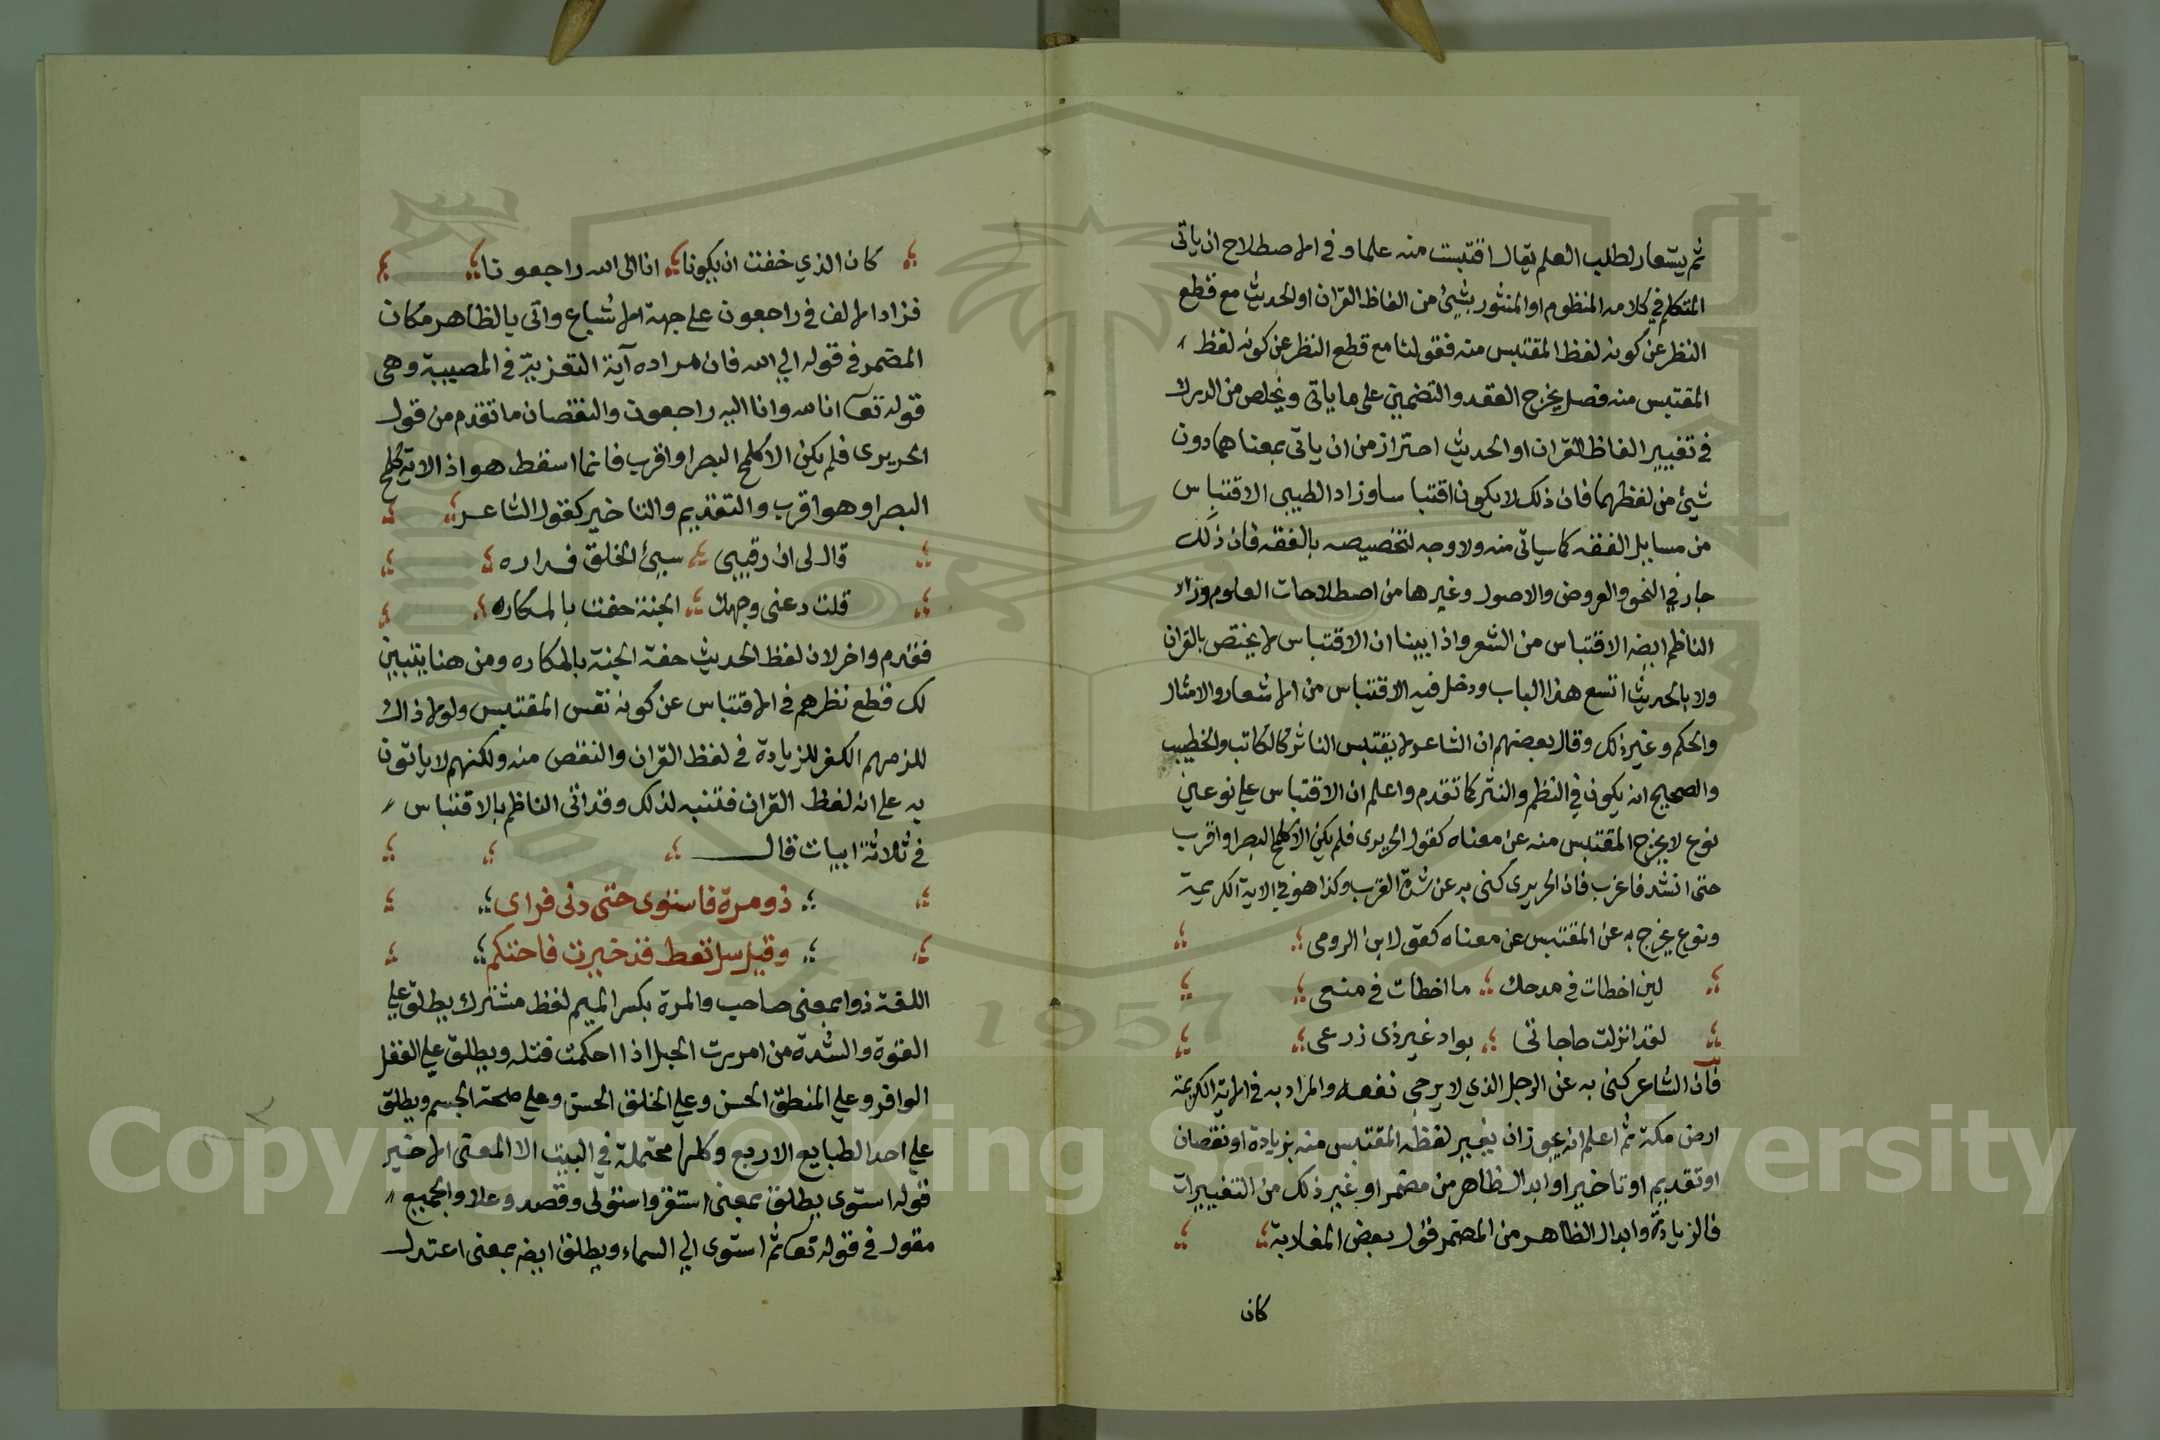 ثم يستعار لطلب العلم يقال اقتبست منه علما وفي الاصطلاح ان ياتى
المتكلم في كلامه المنظوم او المنثور بشيئ من الفاظ القران او الحديث مع قطع
النظر عن كونه لفظ المقتبس منه فقولنا مع قطع النظر عن كونه لفظ
المقتبس منه فصل يخرج العقد والتضمين على ما ياتى ويخلص من الدرك
في تغيير الفاظ القران او الحديث احتراز من ان ياتى بمعناهما دون
شيئ من لفظهما فان ذلك لا يكون اقتباسا وزاد الطيبى الاقتباس
من مسايل الفقه كما سياتى منه ولا وجه لتخصيصه بالفقه فان ذلك
جار في النحو والعروض والاصول وغيرها من اصطلاحات العلوم وزاد
الناظم ايضه الاقتباس من الشعر واذا بينا ان الاقتباس لا يختص بالقران
ولا بالحديث اتسع هذا الباب ودخل فيه الاقتباس من الاشعار والامثال
والحكم وغير ذلك وقال بعضهم ان الشاعر لا يقتبس الناثر كالكاتب والخطيب
والصحيح انه يكون في النظم والنثر كما تقدم واعلم ان الاقتباس علي نوعين
نوع لا يخرج المقتبس منه عن معناه كقول الحريرى فلم يكن الا كلمح البصر او اقرب
حتى انشد فاغرب فان الحريرى كنى به عن شدة القرب وكذا هو في الاية الكريمة
ونوع يخرج به عن المقتبس عن معناه كقول ابن الرومى
لين اخطات في مدحك ما اخطات في منعى
لقد انزلت حاجاتى بواد غير ذى زرعى
فان الشاعر كنى به عن الرجل الذي لا يرجى نفعه والمراد به في الاية الكريمة
ارض مكة ثم اعلم انه يجوز ان يغير لفظه المقتبس منه بزيادة او نقصان
او تقديم او تاخير او ابدال الظاهر من مضمر او غير ذلك من التغييرات
فالزيادة وابدال الظاهر من المضمر قول بعض المغاربة
كان
كان الذي خفت ان يكونا انا الى الله راجعونا
فزاد الالف في راجعون على جهة الاشباع واتى بالظاهر مكان
المضمر في قوله الي الله فان مراده آية التعزية في المصيبة وهى
قوله تعا انا لله وانا اليه راجعون والنقصان ما تقدم من قول
الحريرى فلم يكن الا كلمح البصر او اقرب فانما اسقط هو اذ الاية كلمح
البصر او هو اقرب والتقديم والتاخير كقول الشاعر
قال لى ان رقيبى سيئ الخلق فداره
قلت دعنى وجهك الجنة حفت بالمكاره
فقدم واخر لان لفظ الحديث حفة الجنة بالمكاره ومن هنا يتبين
لك قطع نظرهم في الاقتباس عن كونه نفس المقتبس ولولا ذاك
للزمهم الكفر للزيادة في لفظ القران والنقص منه ولكنهم لا ياتون
به على انه لفظ القران فتنبه لذلك وقد اتى الناظم بالاقتباس
في ثلاثة ابيات قال
ذو مرة فاستوى حتى دنى فراى
وقيل سل تعط قد خيرت فاحتكم
اللغة ذو بمعنى صاحب والمرة بكسر الميم لفظ مشترك يطلق علي
القوة والشدة من امررت الحبل اذا احكمت فتله ويطلق علي العقل
الوافر وعلي المنطق الحسن وعلي الخلق الحسن وعلي صحة الجسم ويطلق
علي احد الطبايع الاربع وكلها محتملة في البيت الا المعنى الاخير
قوله استوى يطلق بمعنى استقر واستولى وقصد وعلا والجميع
مقول في قوله تعا ثم استوى الي السماء ويطلق ايضه بمعنى اعتدل
1957
Copyright © King Saud University